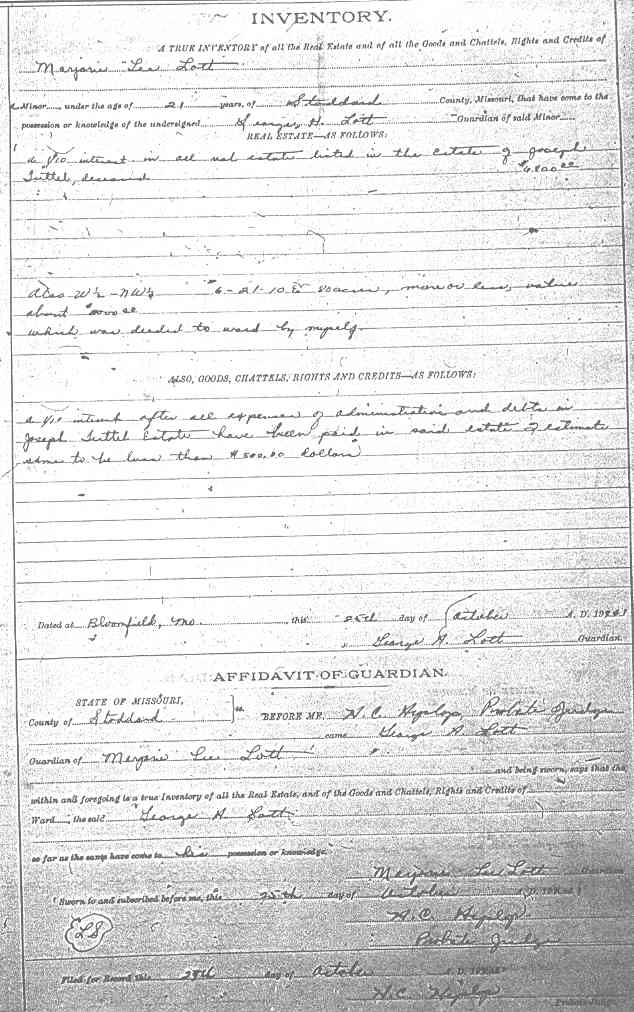 INVENTORY.
A TRUE INVENTORY of all the Real Estate and of all the Goods and Chattels, Rights and Credits of
Marjorie Lee Lott
Minor, under the age of 21 years, of Stoddard County, Missouri, that have come to the
possession or knowledge of the undersigned George H. Lott Guardian of said Minor
REAL ESTATE—AS FOLLOWS:
a 1/10 interest in all real estate listed in the Estate of Joseph
Tuttel, deceased $6,800.00
Also W½ - NW¼ 6-21-10 E 80 acres, more or less, value
about
which was deeded to ward by myself
ALSO, GOODS, CHATTELS, RIGHTS AND CREDITS—AS FOLLOWS:
a 1/10 interest after all expenses of administration and debts in
Joseph Tuttel Estate have been paid in said estate I estimate
same to be less than $500.00 dollars
Dated at Bloomfield, Mo. this 25th day of October A. D. 19
George H. Lott Guardian.
AFFIDAVIT OF GUARDIAN.
STATE OF MISSOURI,
County of Stoddard ss. BEFORE ME, H. C. Probate Judge
came George H. Lott
Guardian of Marjorie Lee Lott
and being sworn, says that the
within and foregoing is a true Inventory of all the Real Estate, and of the Goods and Chattels, Rights and Credits of
Ward, the said George H. Lott
so far as the same have come to his possession or knowledge.
Marjorie Lee Lott Guardian
Sworn to and subscribed before me, this 25th day of October A. D. 19
H. C.
LS
Probate Judge
Filed for Record this 28th day of October A. D. 19
H. C.
Probate Judge